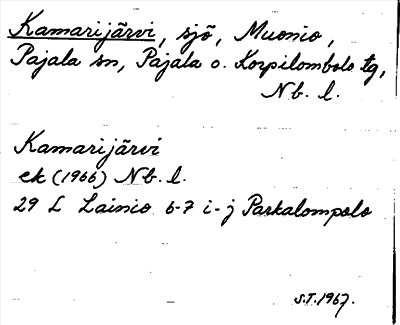 Kamarijärvi, sjö, Muonio,
Pajala sn, Pajala o. Korpilombolo tg,
Nb. l.
Kamarijärvi
ek (1966) Nb. l.
29 L Lainio 6-7 i-j Parkalompolo
S.T. 1967.